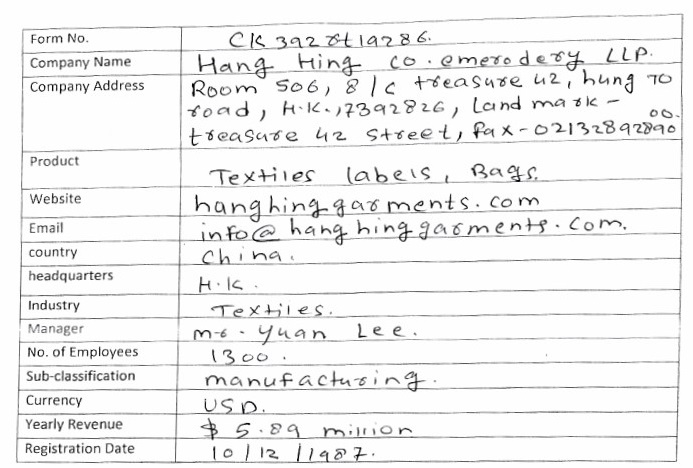 Form No. CK392rt19286.
Company Name Hang Hing co. emerodery LLP.
Company Address Room 506, 8/c treasure 42, hung TO
road, H.K.,7392826, Land mark -
treasure 42 street, fax-0213289289000.
Product Textiles labels, Bags.
Website hanghinggarments.com
Email info@hanghinggarments.com.
country China.
headquarters H.K.
Industry Textiles.
Manager mr. Yuan Lee.
No. of Employees 1300.
Sub-classification manufacturing.
Currency USD.
Yearly Revenue $ 5.89 million
Registration Date 10/12/1987.